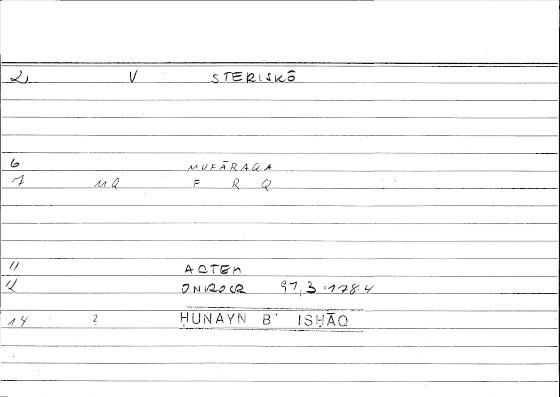 2 V STERISKŌ
6 MUFĀRAQA
7 MQ F R Q
11 AQTEM
12 ONIROCR 97,3 1784
14 ? ḤUNAYN B' ISḤĀQ